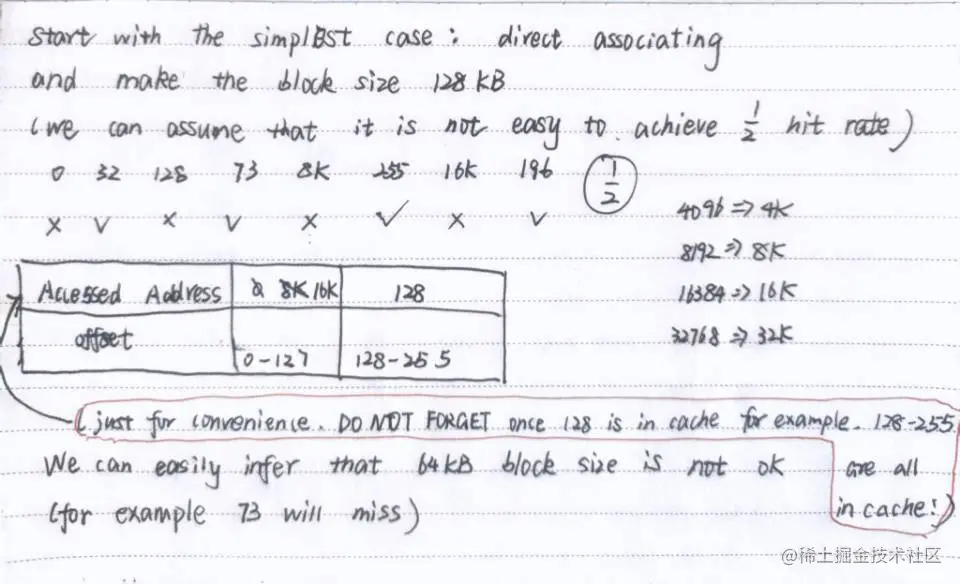 start with the simplest case : direct associating
and make the block size 128 KB
(we can assume that it is not easy to achieve 1/2 hit rate)
0 32 128 73 8K 255 16K 196 1/2
× ✓ × ✓ × ✓ × ✓
4096 => 4K
8192 => 8K
16384 => 16K
32768 => 32K
Accessed Address 0 8K 16K 128
offset 0-127 128-255
(just for convenience. DO NOT FORGET once 128 is in cache for example. 128-255
are all
in cache!)
We can easily infer that 64KB block size is not ok
(for example 73 will miss)
@稀土掘金技术社区